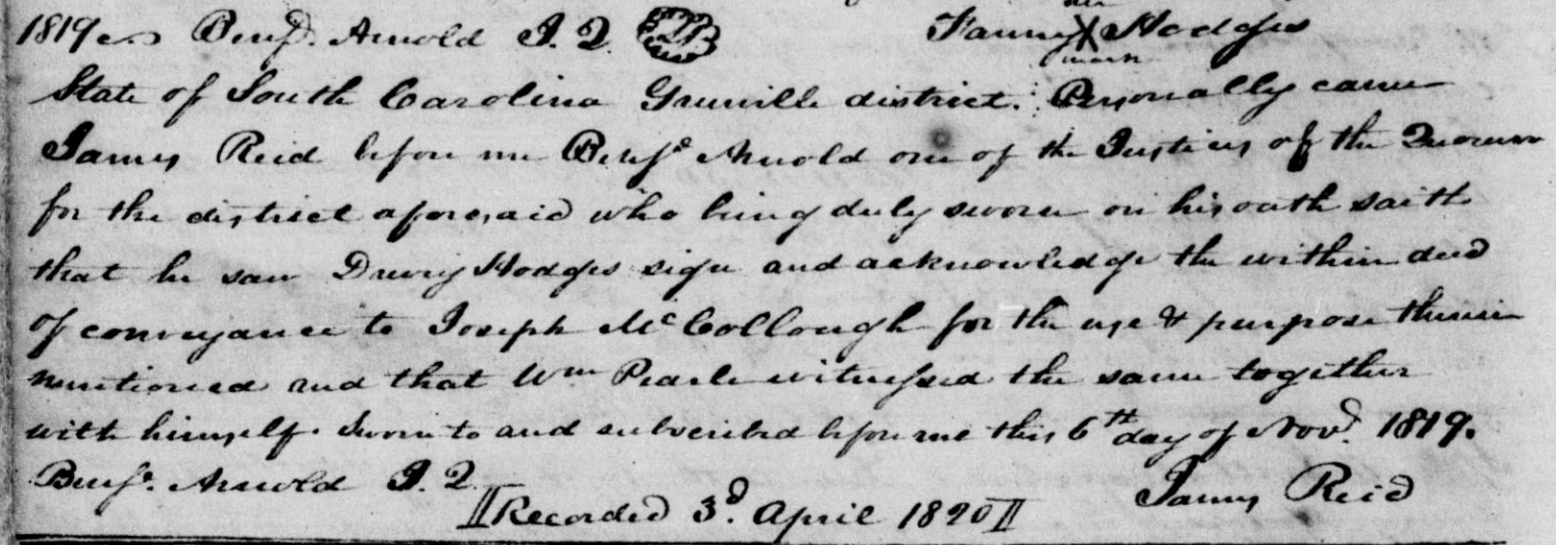 1819 Benjⁿ. Arnold J. Q. her
Fanny X Hodges
mark
State of South Carolina Grenville district. Personally came
James Reid before me Benjⁿ Arnold one of the Justices of the Quorum
for the district aforesaid who being duly sworn on his oath saith
that he saw Drury Hodges sign and acknowledge the within deed
of conveyance to Joseph McCollough for the use & purpose therein
mentioned and that Wm Pearle witnessed the same together
with himself. Sworn to and subscribed before me this 6th day of Novr. 1819.
Benjⁿ. Arnold J. Q. James Reid
Recorded 3d. April 1820